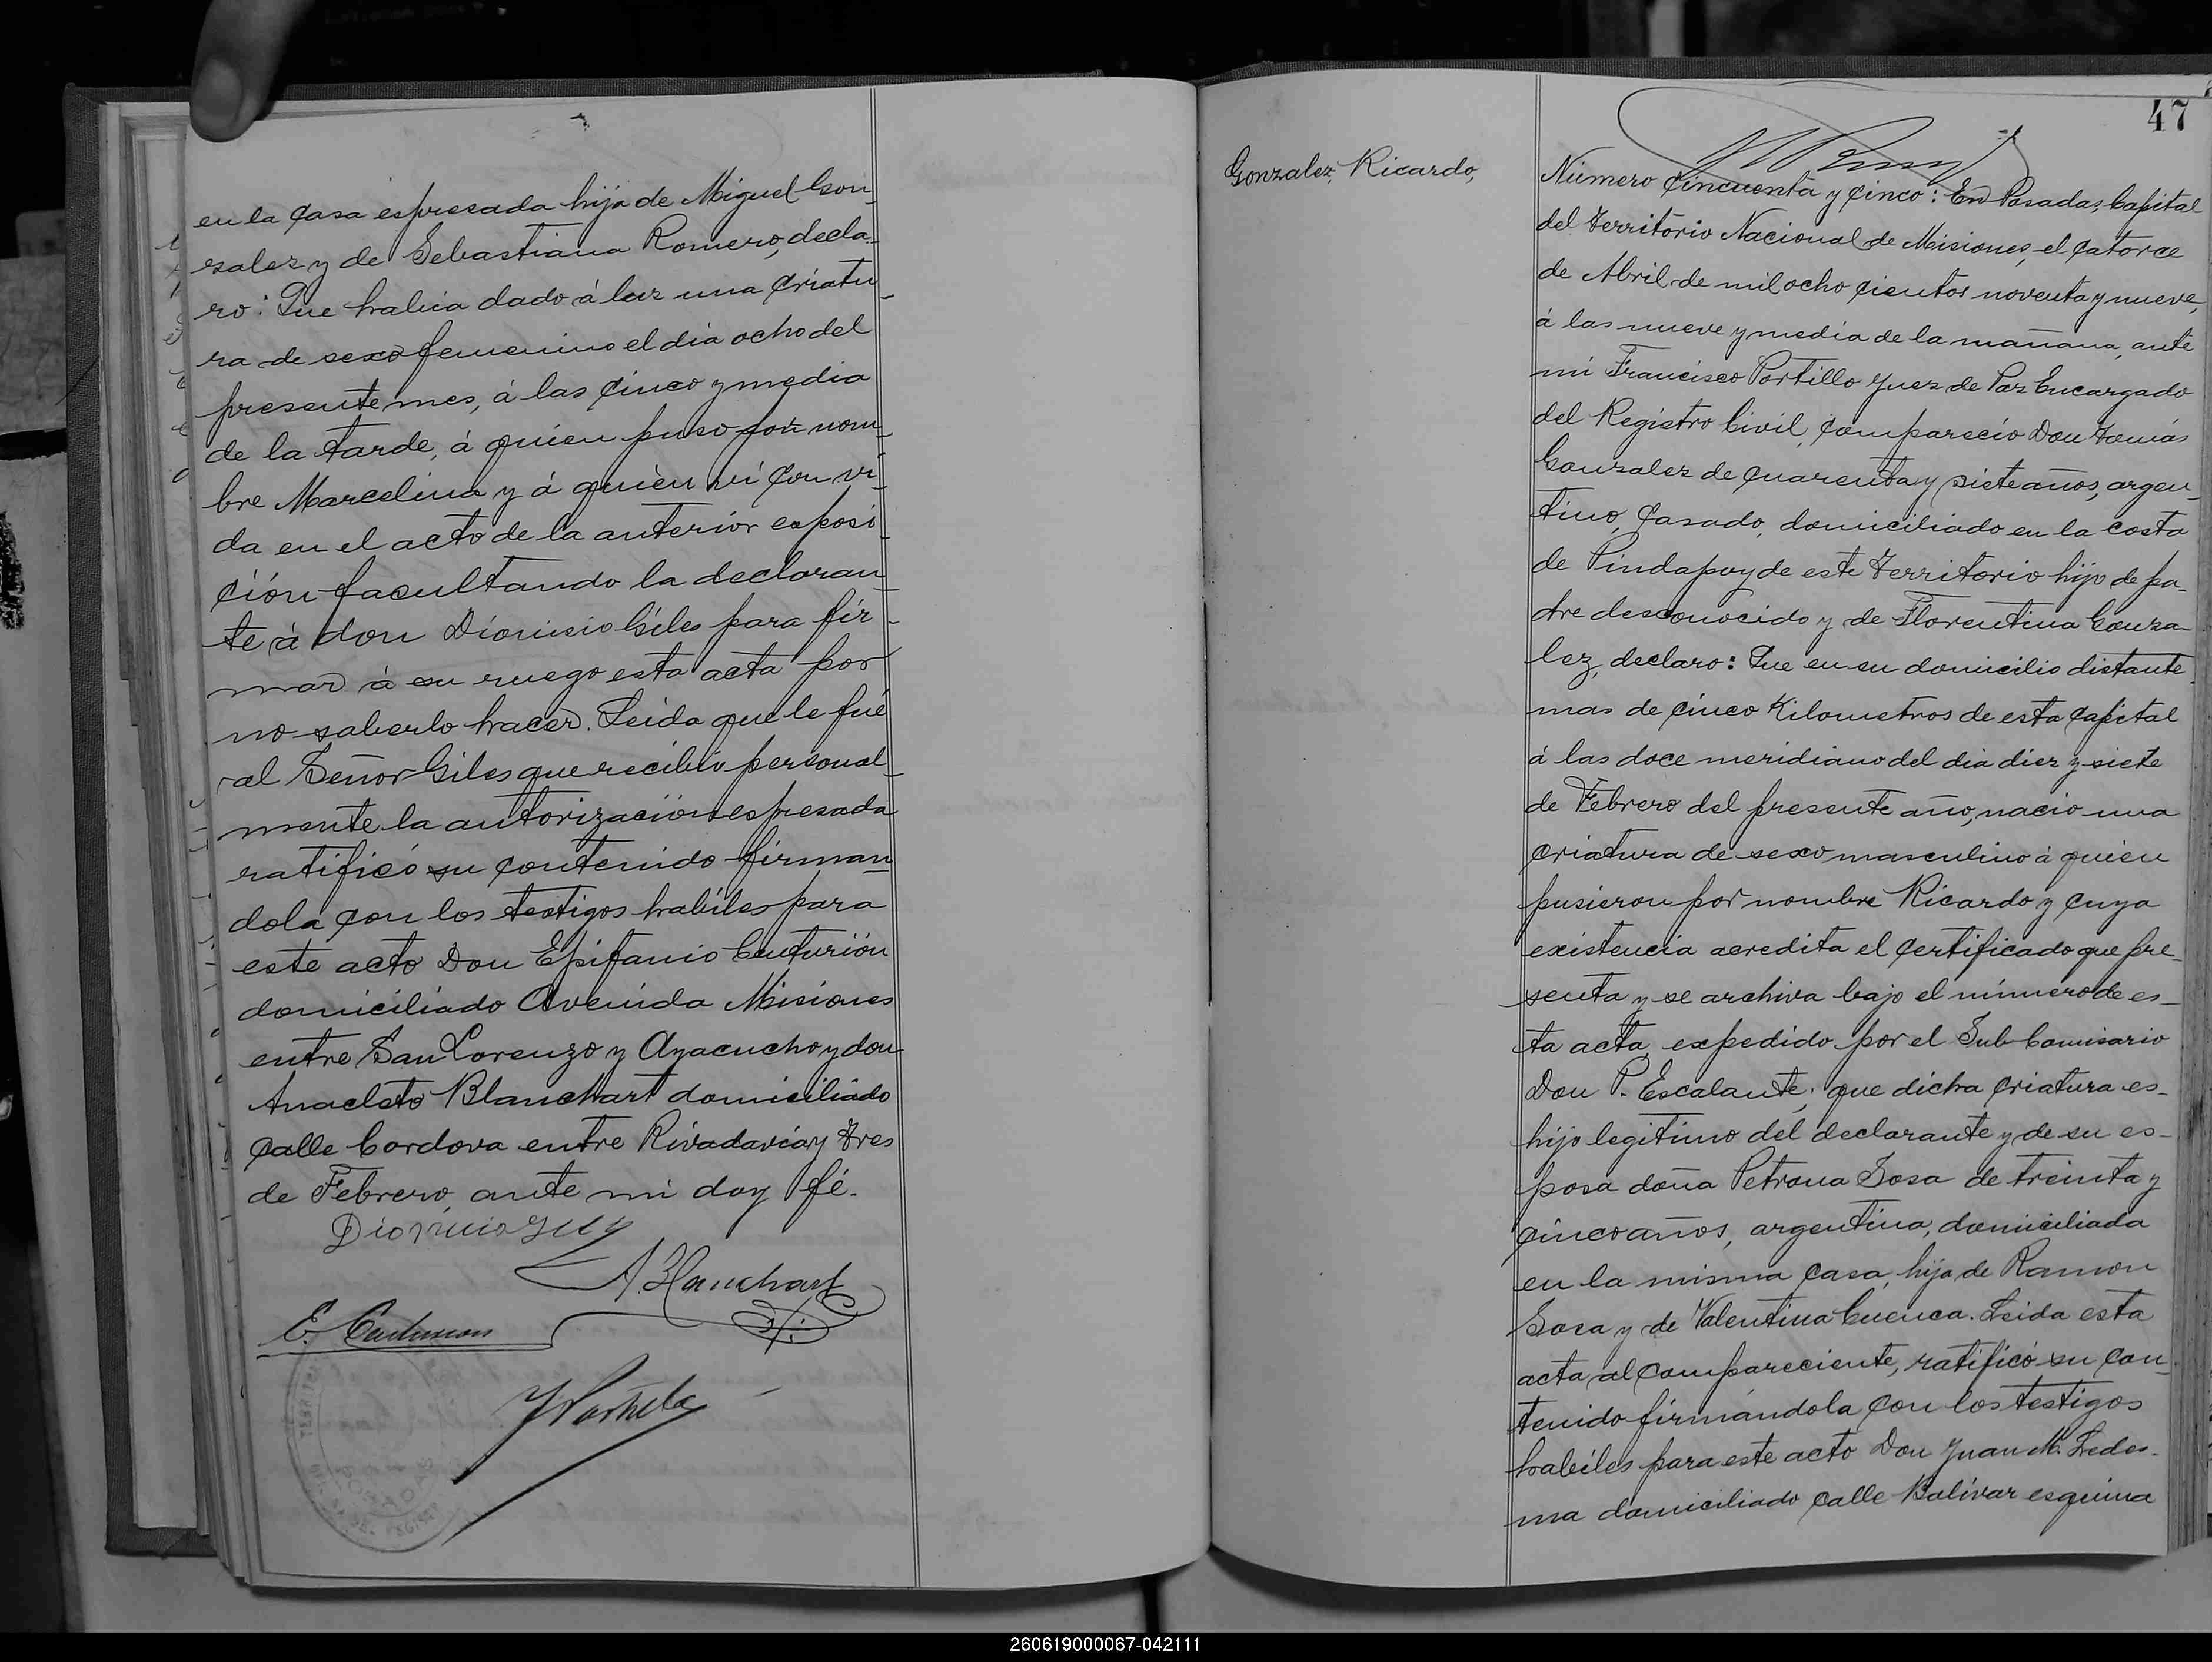 en la casa espresada hija de Miguel Gon-
zalez y de Sebastiana Romero, decla-
ro: Que habia dado á luz una criatu-
ra de sexo femenino el dia ocho del
presente mes, á las cinco y media
de la tarde, á quien puso por nom-
bre Marcelina y á quien ví con vi-
da en el acto de la anterior exposi-
ción facultando la declaran-
te á don Dionisio Giles para fir-
mar á su ruego esta acta por
no saberlo hacer. Leida que le fué
al Señor Giles que recibió personal-
mente la autorización espresada
ratificó su contenido firman-
dola con los testigos habiles para
este acto Don Epifanio Centurión
domiciliado Avenida Misiones
entre San Lorenzo y Ayacucho y don
Anacleto Blanchart domiciliado
calle Cordova entre Rivadavia y Tres
de Febrero, ante mi doy fé.
Dionicio
A. Blanchart
E. Centurion
47
Gonzalez, Ricardo,
Número cincuenta y cinco: En Posadas, Capital
del Territorio Nacional de Misiones, el catorce
de Abril de mil ocho cientos noventa y nueve,
á las nueve y media de la mañana, ante
mi Francisco Portillo Juez de Paz Encargado
del Registro Civil, compareció Don Tomás
Gonzalez de cuarenta y siete años, argen-
tino, casado, domiciliado en la costa
de Pindapoy de este Territorio hijo de pa-
dre desconocido y de Florentina Gonza-
lez, declaro: Que en su domicilio distante
mas de cinco Kilometros de esta capital
á las doce meridiano del dia diez y siete
de Febrero del presente año, nacio una
criatura de sexo masculino á quien
pusieron por nombre Ricardo y cuya
existencia acredita el certificado que pre-
senta y se archiva bajo el número de es-
ta acta, expedido por el Sub-Comisario
Don P. Escalante; que dicha criatura es-
hijo legitimo del declarante y de su es-
posa doña Petrona Sosa de treinta y
cinco años, argentina, domiciliada
en la misma casa, hija de Ramon
Sosa y de Valentina Cuenca. Leida esta
acta al compareciente, ratificó su con-
tenido firmándola con los testigos
habiles para este acto Don Juan M. Ledes-
ma domiciliado calle Bolivar esquina
260619000067-042111